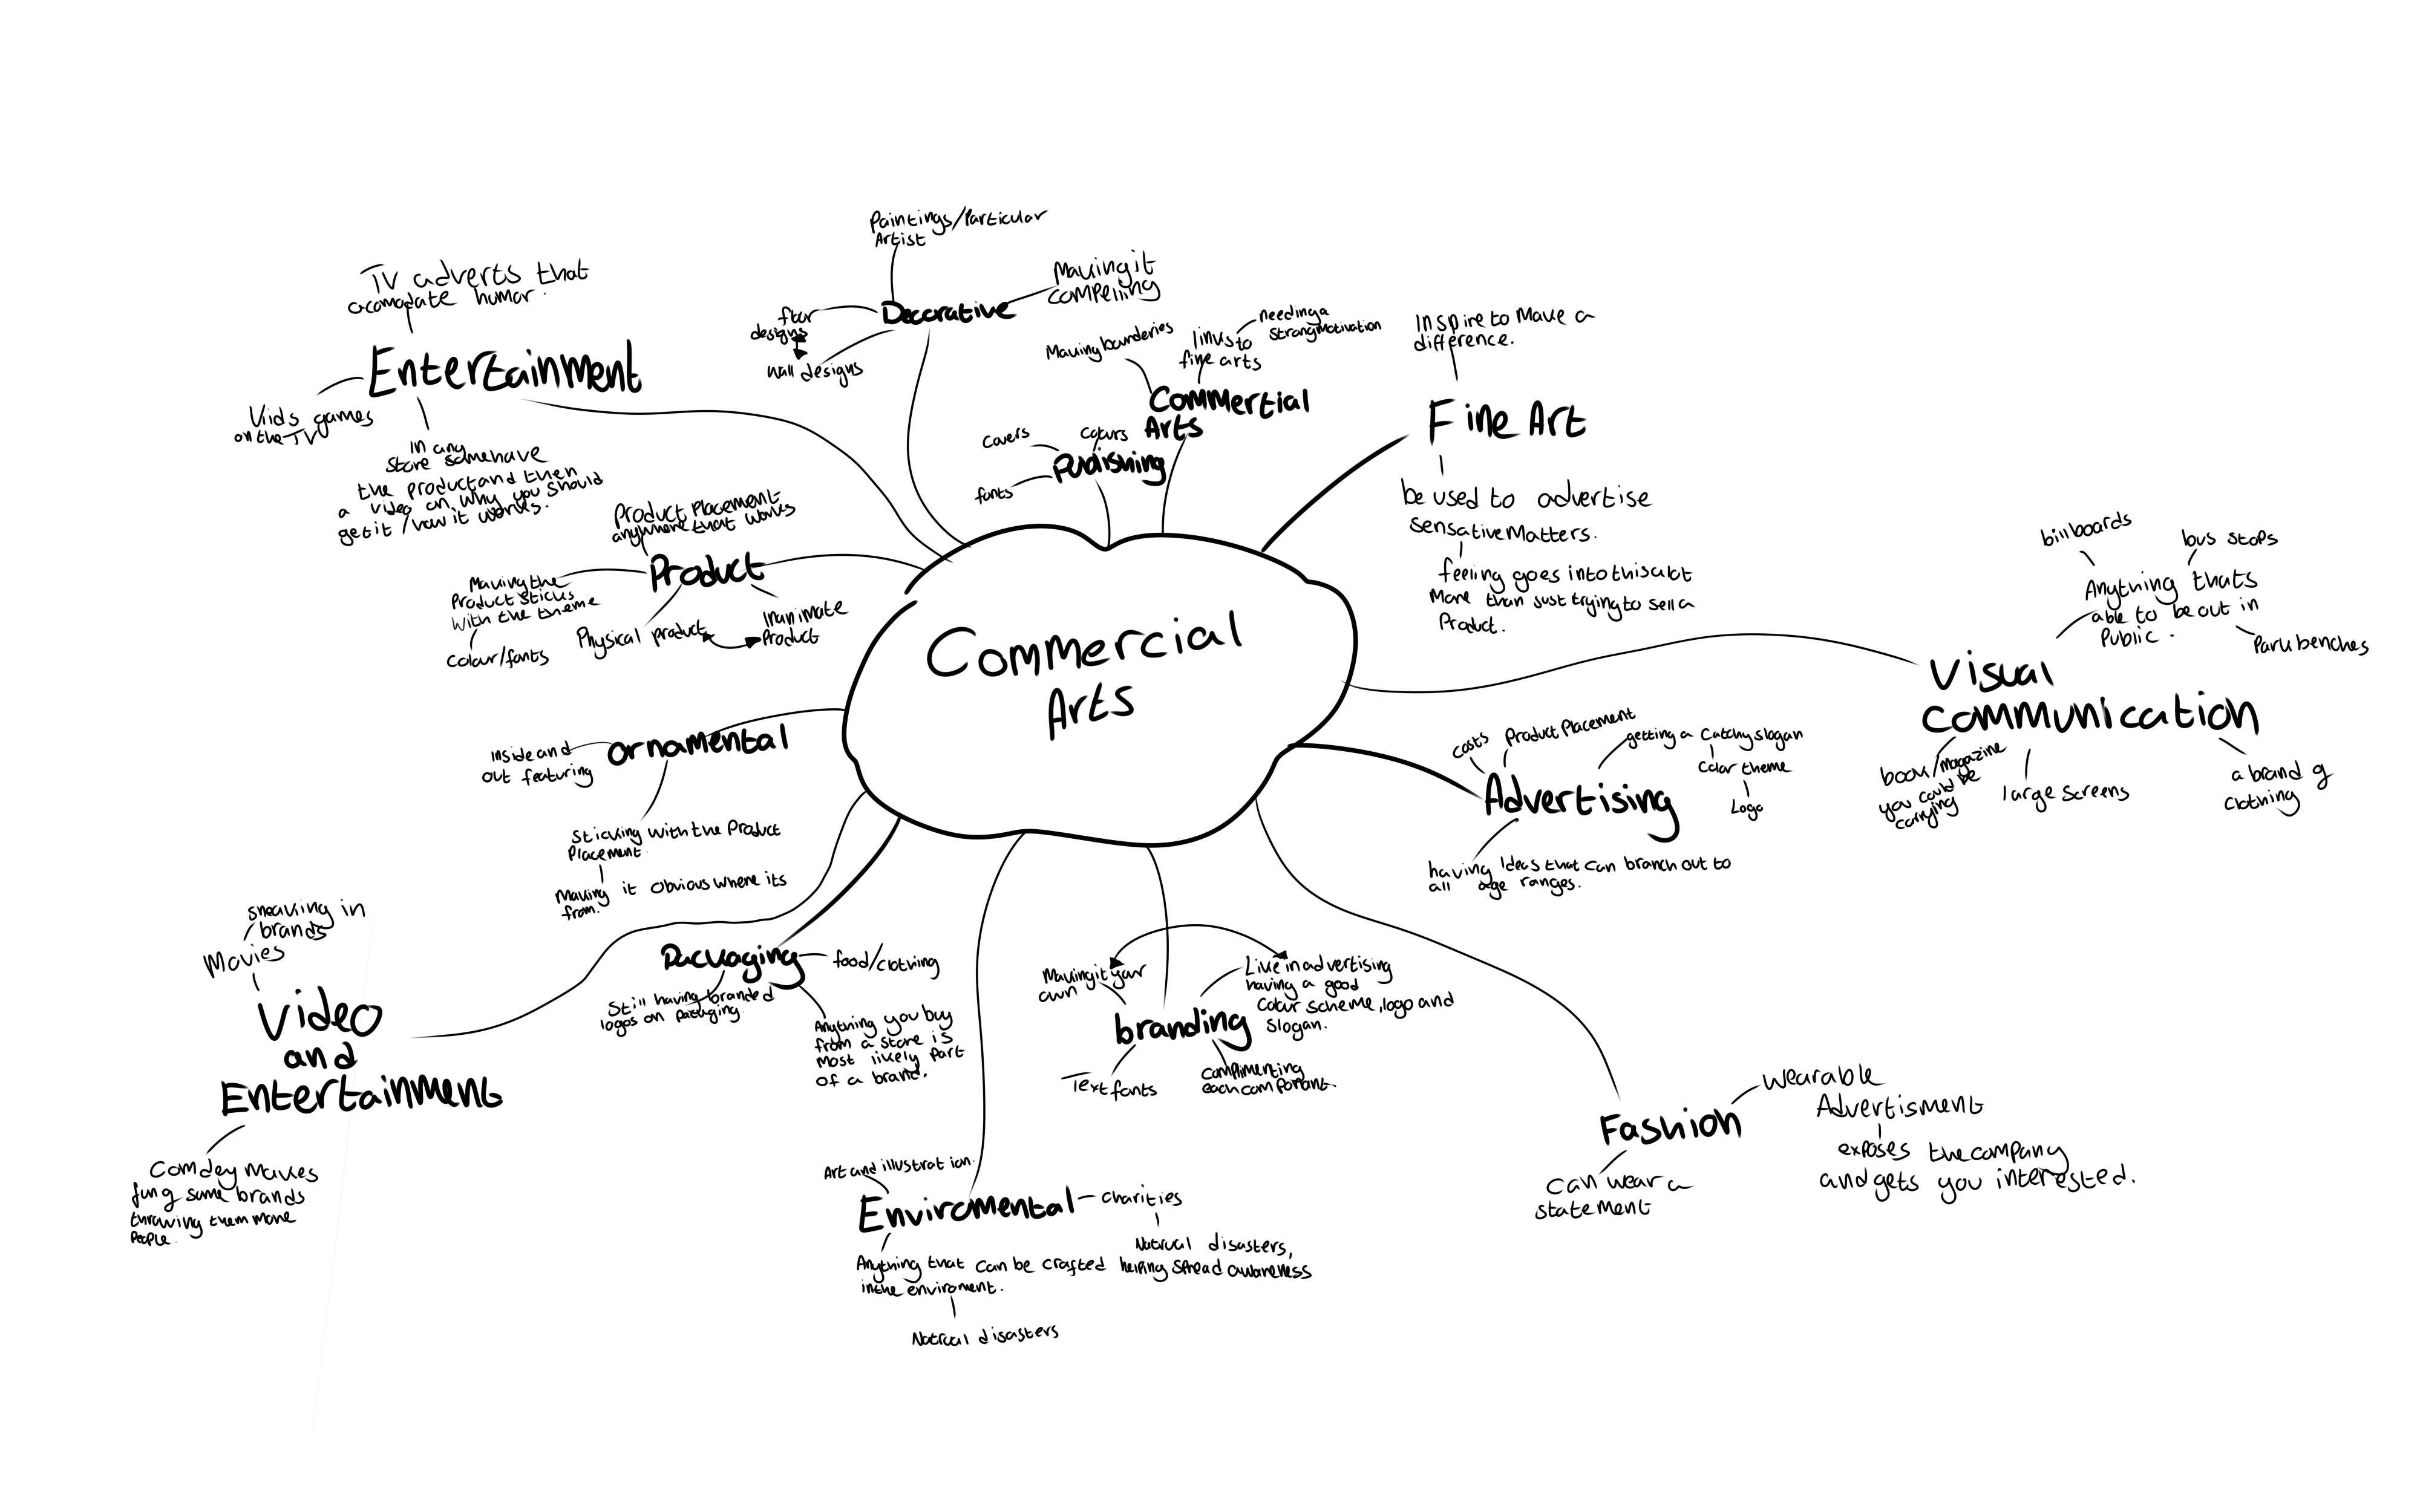 Paintings/Particular
Artist
Decorative
Making it
compelling
floor
designs
wall designs
TV adverts that
acomodate humor.
Entertainment
Kids games
on the TV
In any
store some have
the product and then
a video on why you should
get it / how it works.
Making bounderies
links to
fine arts
needing a
strong motivation
Commertial
Arts
Covers
colours
Publishing
fonts
Inspire to Make a
difference.
Fine Art
be used to advertise
sensative Matters.
feeling goes into this alot
More than just trying to sell a
Product.
Product Placement
anywhere that works
Product
Making the
Product sticks
with the theme
Colour/fonts
Physical product
Inanimate
Product
Commercial
Arts
billboards
bus stops
Anything thats
able to be out in
Public.
Park benches
Visual
Communication
book/magazine
you could be
carrying
large screens
a brand of
clothing
Ornamental
Inside and
out featuring
Sticking with the Product
Placement.
Making it obvious where its
from.
costs
Product Placement
getting a Catchy slogan
Color theme
Logo
Advertising
having Ideas that can branch out to
all age ranges.
sneaking in
brands
Movies
Video
and
Entertainment
Comdey Makes
fun of some brands
throwing them more
People.
Packaging
food/clothing
Still having branded
logos on packging.
Anything you buy
from a store is
most likely part
of a brand.
Making it your
own
Like in advertising
having a good
colour scheme, logo and
slogan.
branding
Text fonts
complimenting
each componant.
Fashion
Wearable
Advertisment
exposes the company
and gets you interested.
Can wear a
statement
Art and illustration.
Enviromental
charities
Natrual disasters,
helping spread awareness
Anything that can be crafted
in the enviroment.
Natrual disasters